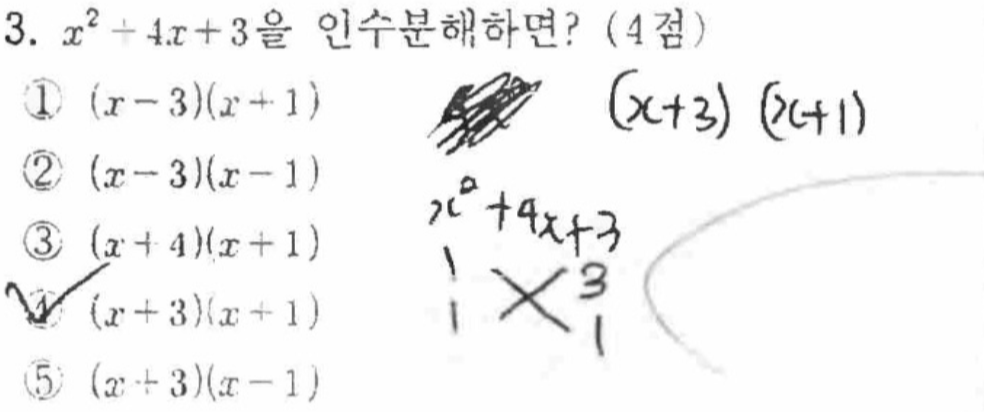 3. x² + 4x + 3을 인수분해하면? (4점)
① (x - 3)(x + 1)
② (x - 3)(x - 1)
③ (x + 4)(x + 1)
④ (x + 3)(x + 1)
⑤ (x + 3)(x - 1)
(x+3) (x+1)
x² +4x+3
1 3
1 1